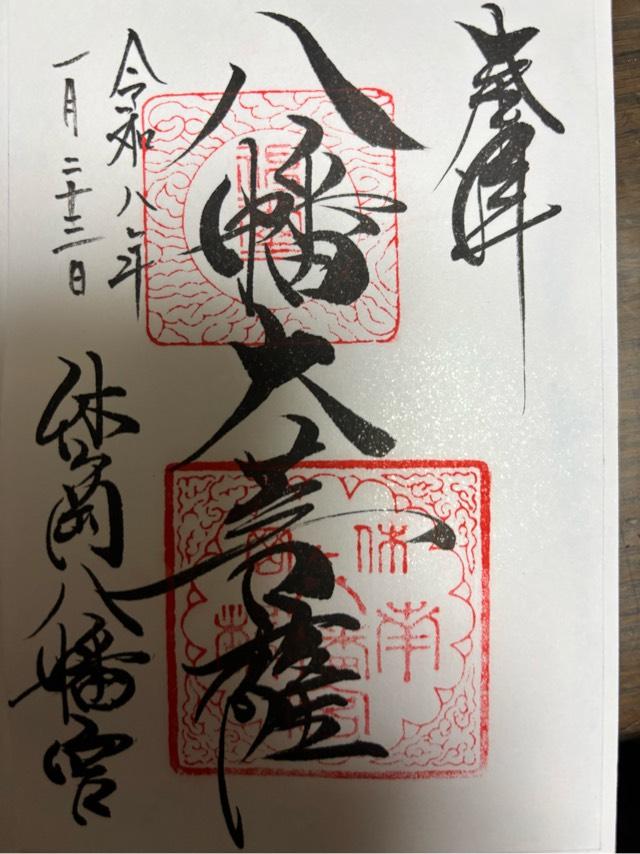 奉拝
八幡大菩薩
令和八年
一月二十三日
休岡八幡宮